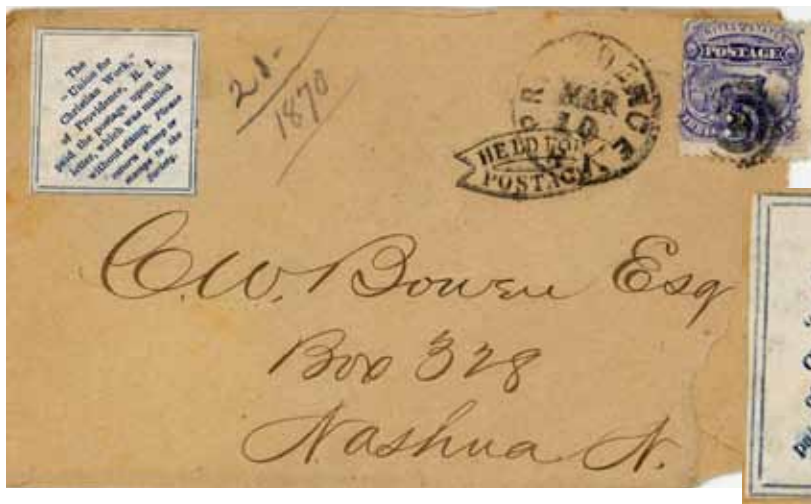 The
"Union for
Christian Work,"
of Providence, R. I.
paid the postage upon this
letter, which was mailed
without stamp. Please
return stamp or
stamps to the
Society.
21.
1870
PROVIDENCE
MAR
10
R I
HELD FOR
POSTAGE
POSTAGE
C. W. Bowen Esq
Box 328
Nashua N.